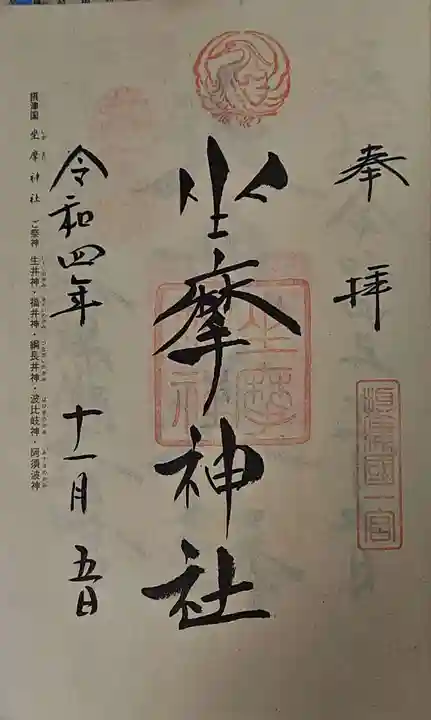 奉拝
摂津國一宮
坐摩神社
坐摩神社
令和四年 十一月 五日
摂津国 坐摩神社 ご祭神 生井神・福井神・綱長井神・波比岐神・阿須波神